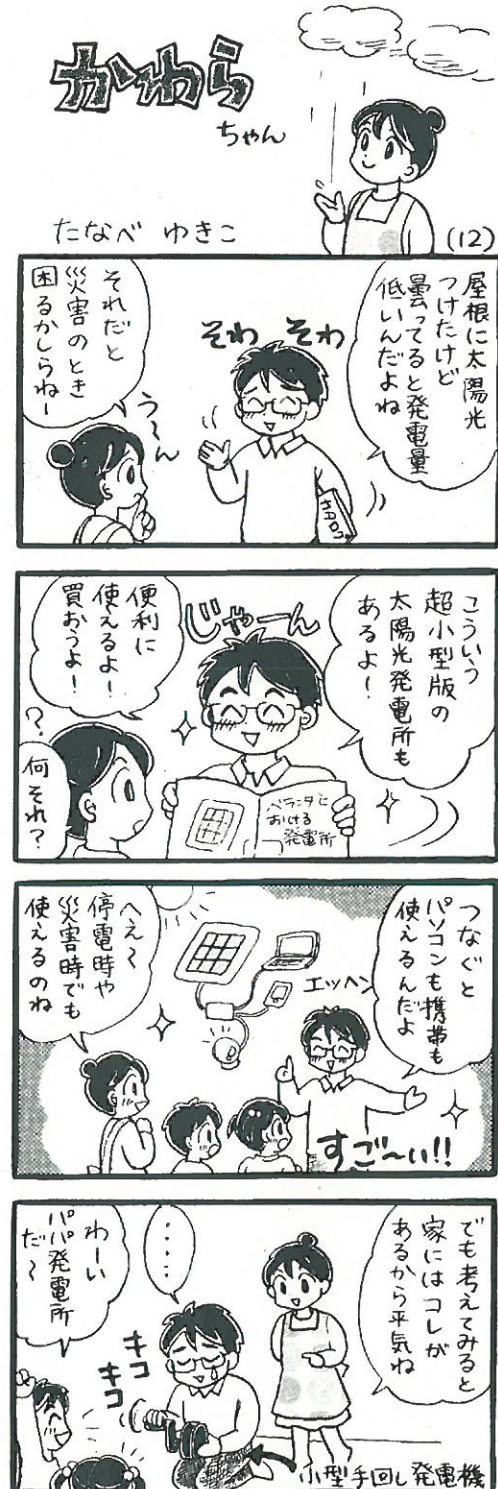 かわら
ちゃん
たなべ ゆきこ
(12)
屋根に太陽光
つけたけど
曇ってると発電量
低いんだよね
そわ そわ
カタログ
それだと
災害のとき
困るかしらねー
う〜ん
こういう
超小型版の
太陽光発電所も
あるよ！
じゃーん
便利に
使えるよ！
買おうよ！
ベランダに
おける
発電所
？
何それ？
つなぐと
パソコンも携帯も
使えるんだよ
エッヘン
へえ〜
停電時や
災害時でも
使えるのね
すご〜い!!
でも考えてみると
家にはコレが
あるから平気ね
・・・・・
キコ
キコ
わーい
パパ発電所
だ〜
小型手回し発電機